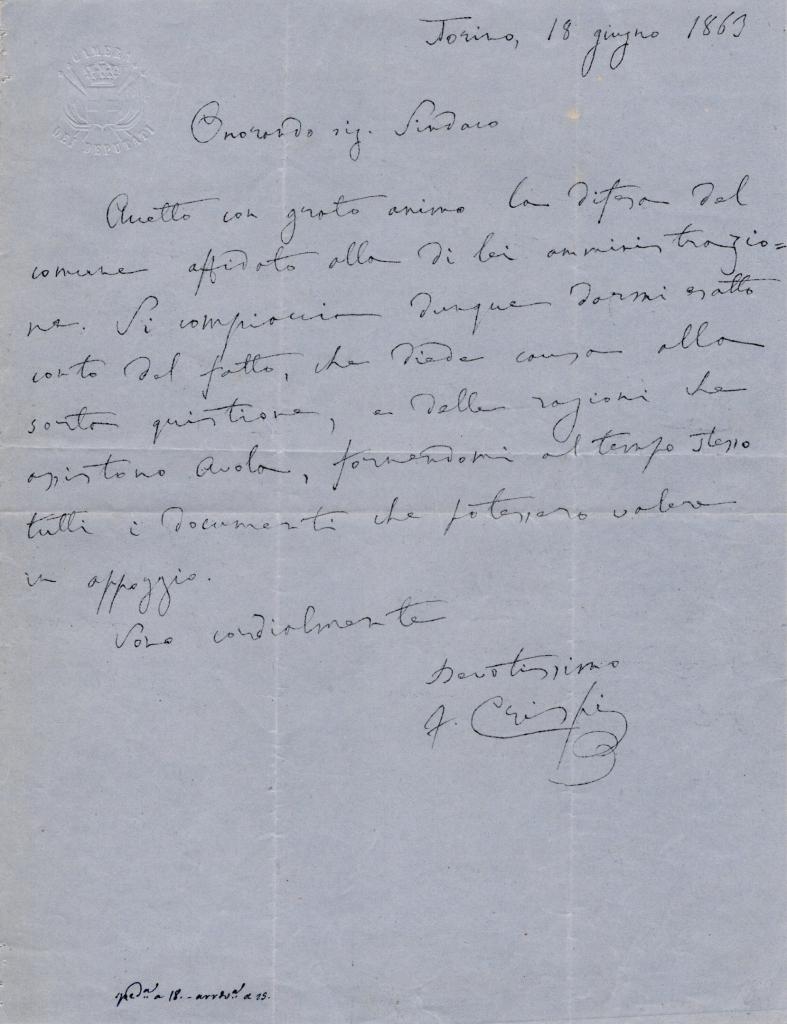 Torino, 18 giugno 1863
CAMERA
DEI DEPUTATI
Onorando sig. Sindaco
Accetto con grato animo la difesa del
comune affidato alla di lei amministrazio=
ne. Si compiaccia dunque darmi esatto
conto del fatto, che diede causa alla
sorta quistione, e delle ragioni che
assistono Avola, fornendomi al tempo stesso
tutti i documenti che potessero valere
in appoggio.
Sono cordialmente
Devotissimo
F. Crispi
a 18. - a 25.